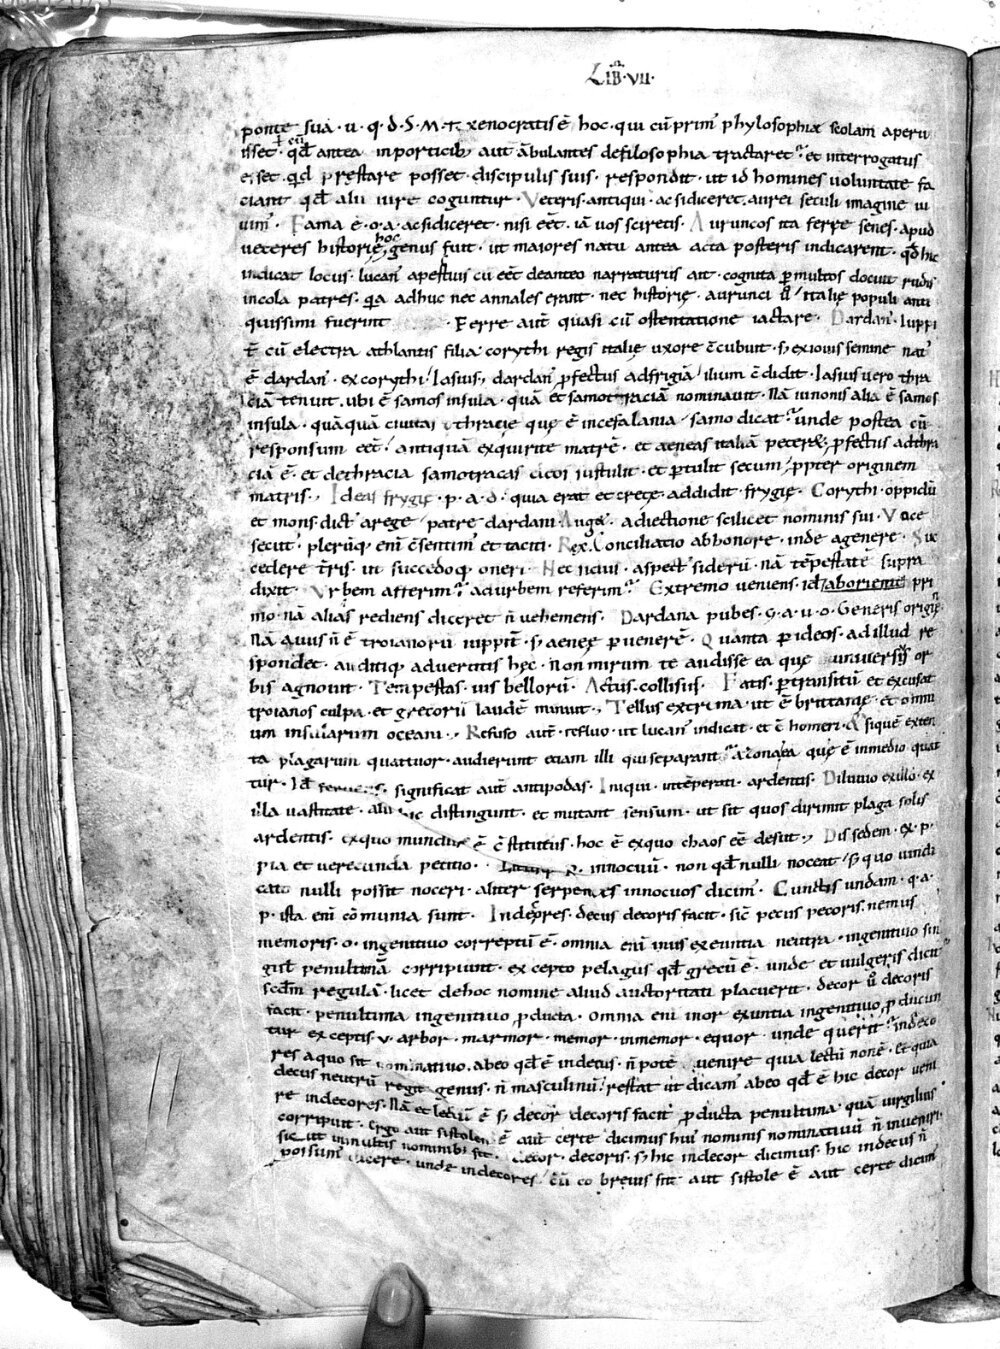 LIB · VII ·
ponte sua · u · q · d · S · M · T · xenocratis ē hoc · qui cū prim' phylosophiæ scolam aperu
isset · qd̄ antea in porticib; aut ābulantes de filosophia tractaret' · et interrogatus
esset · quid prestare posset discipulis suis · respondit · ut id homines uoluntate fa
ciant qd̄ alii iure coguntur · Veteris · antiqui · ac si diceret · aurei seculi imagine ui
uim' · Fama ē · o · a · ac si diceret · nisi eēt · iā uos sciretis · Auruncos ita ferre senes · apud
ueteres historię hoc genus fuit · ut maiores natu antea acta posteris indicarent · qd̄ hic
indicat locus · lucan' apertius cū eēt de anteo narraturus ait · cognita p multos docuit rudis
incola patres · quia adhuc nec annales erant · nec historię · aurunci u / italię populi anti
quissimi fuerunt · Ferre aut quasi cū ostentatione iactare · Dardan' · Iuppi
t cū electra athlantis filia corythi regis italię uxore cc̄ubuit · s; ex iouis semine nat'
ē dardan' · ex corythi / Iasius; dardan' pfectus ad frigiā / ilium cc̄didit · Iasius uero thra
ciā tenuit · ubi ē samos insula · quā et samotraciā nominauit · Nā iunonis alia ē samos
insula · quāquā ciuitas thracię que ē in cefalania / samo dicat' · unde postea cū
responsum eēt · antiquā exquirite matrē · et aeneas italiā peteret; pfectus ad thra
ciā ē · et de thracia samotracas deos sustulit · et ptulit secum / ppter originem
matris; Ideas frygię · p · a · d · quia erat et cretę · addidit frygię · Corythi · oppidū
et mons dict' a rege / patre dardani · Auget · adiectione scilicet nominis sui · Voce
secuti · plerūq; enī cc̄sentim' et taciti · Rex · Conciliatio ab honore · inde a genere · Suc
cedere tr̄ris · ut succedoq; oneri · Nec sidus · aspect' siderū · nā tēpestatē supra
dixit · Vrbem afferim' ad urbem referim' · Extremo ueniens · id / ab oriente pri
mo · nā alias rediens diceret n̄ uehemens · Dardana pubes · g · a · u · o · Generis origin
Nā auus n̄ ē troianorū iuppit · s; aenęę puenerē · Quanta p ideos · ad illud re
spondet · auditiq; aduertitis hęc · non mirum te audisse ea quę uniuersus or
bis agnouit · Tempestas · uis bellorū · Actus · collisus · Fatis · ptransitū et excusat
troianos culpa · et grecorū laudē minuit; Tellus extrema · ut ē brittanię · et omni
um insularum oceani; Refuso aut · refluo · ut lucan' indicat · et ē homeri · & siquē exten
ta plagarum quattuor · audierunt etiam illi qui separant' a zona ea quę ē in medio quat
tuor · Id feruens · significat aut antipodas · Iniqui · intēperati · ardentis · Diluuio ex illo · ex
illa uastitate · alii sic distingunt · et mutant sensum · ut sit quos dirimit plaga solis
ardentis · ex quo mundus ē cc̄stitutus · hoc ē ex quo chaos eē desiit; Dis sedem · ex · p
pia et uerecunda petitio · innocuū · non qd̄ nulli noceat / s; quo uindi
cato nulli possit noceri · aliter serpentes innocuos dicim' · Cunctis undam · q · a ·
p · ista enī cōmunia sunt · Indecores · decus decoris facit · sic pecus pecoris · nemus
memoris · o · in genitiuo correptū ē · omnia enī in us exeuntia neutra · in genitiuo sin
gul penultimā corripiunt · excepto pelagus qd̄ grecū ē · unde et uulgeris dicit
scdm regulā · licet de hoc nomine aliud auctoritati placuerit · decor u decoris
facit · penultima in genitiuo pducta · omnia enī in or exuntia in genitiuo pducun
tur exceptis · v · arbor · marmor · memor · inmemor · equor · unde querit' indeco
res a quo sit nominatiuo · ab eo qd̄ ē indecus · n̄ potē uenire quia lectū non ē · et quia
decus neutrū regit genus · n̄ masculinū / restat ut dicam' ab eo qd̄ ē hic decor ueni
re indecores · Nā et lectū ē s; decor decoris facit pducta penultima · quā uirgilius
corripuit · Ergo aut sistolen ē aut certe dicimus hui' nominis nominatiuū n̄ inueniri ·
sic ut in multis nominib; fit · decor · decoris · s; hic indecor dicimus · hic indecus n̄
possum' dicere · unde indecores / cū co breuis sit aut sistole ē aut certe dicim'